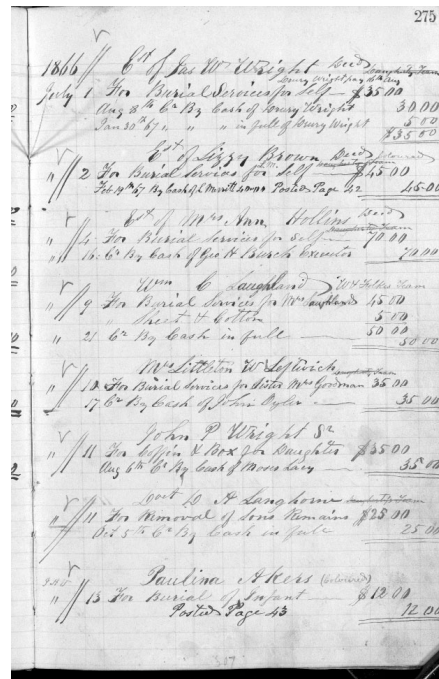 275
1866 Est of Jas W Wright Decd
July 1 For Burial Services for Self $35.00
Aug 8th Cr By Cash of Drury Wright 30 00
Jan 30th 67 " " " in full of Drury Wright 5 00
$35 00
Est of Lizzy Brown Decd Colored
" 2 For Burial Services for Self $45.00
Feb 19th 67 By Cash of Merritt Posted Page 42 45 00
Est of Mrs Ann Hollins Decd
" 4 For Burial Services for Self 70.00
" 16 Cr By Cash of Geo H Burch Executor 70 00
Wm C Laughland
" 9 For Burial Services for Mrs Laughland 45 00
" Sheet & Cotton 5 00
50 00
" 21 Cr By Cash in full 50 00
Mr Littleton W Leftwich
" 10 For Burial Services for Sister Mrs Goodman 35 00
17 Cr By Cash of John 35 00
John P Wright Sr
" 11 For Coffin & Box for Daughter $35 00
Aug 6th Cr By Cash of Moses Lacy 35 00
Doct D A Langhorne
" 11 For Removal of Sons Remains $25 00
Oct 5th Cr By Cash in full 25 00
Paulina Akers (Colored)
" 13 For Burial of Infant $12 00
Posted Page 43 12 00
307